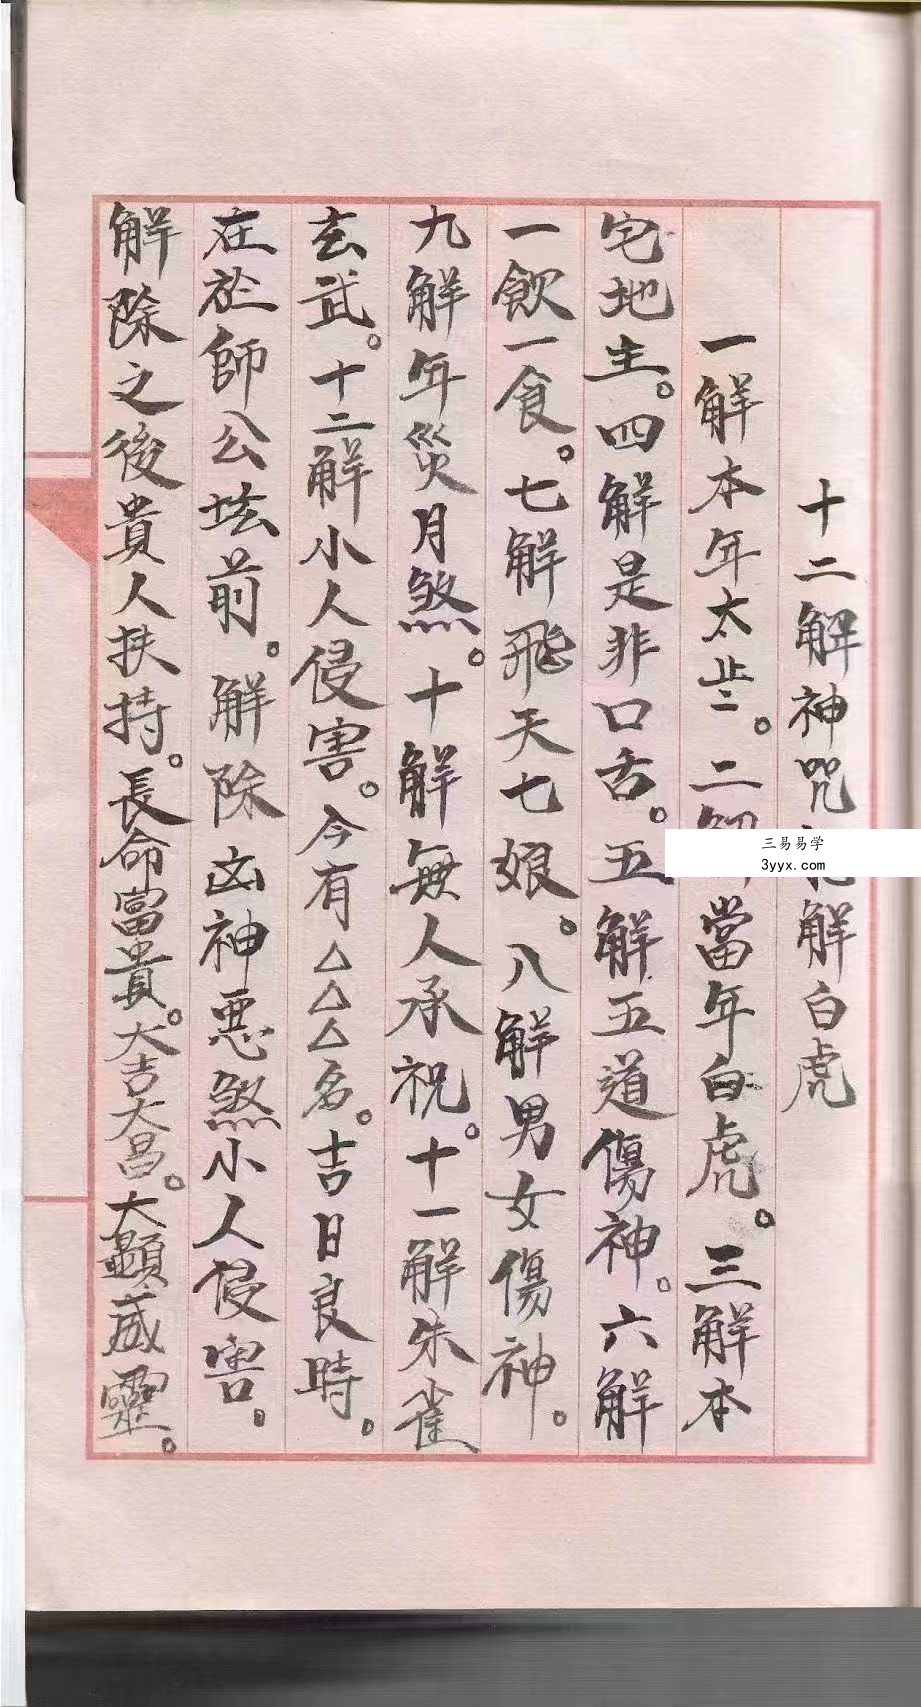 十二解神咒 解白虎
一解本年太歲。二解當年白虎。三解本
宅地主。四解是非口舌。五解五道傷神。六解
一飲一食。七解飛天七娘。八解男女傷神。
九解年災月煞。十解無人承祝。十一解朱雀
玄武。十二解小人侵害。今有△△△名。吉日良時。
在於師公坛前。解除凶神惡煞小人侵害。
解除之後貴人扶持。長命富貴。大吉大昌。大顯威靈。
三易易学
3yyx.com